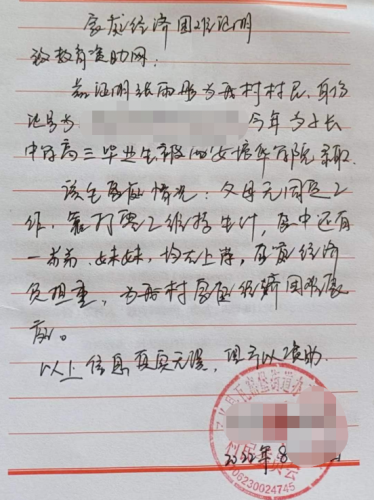 家庭经济困难证明
致教育资助网：
兹证明张雨彤为我村村民，身份
证号为 今年为子长
中学高三毕业生被西安培华学院录取。
该生家庭情况：父母无固定工
作，靠打零工维持生计，家中还有
一弟弟、妹妹，均在上学，家庭经济
负担重，为我村家庭经济困难家
庭。
以上信息真实无误，望予以资助。
年8
06230024745